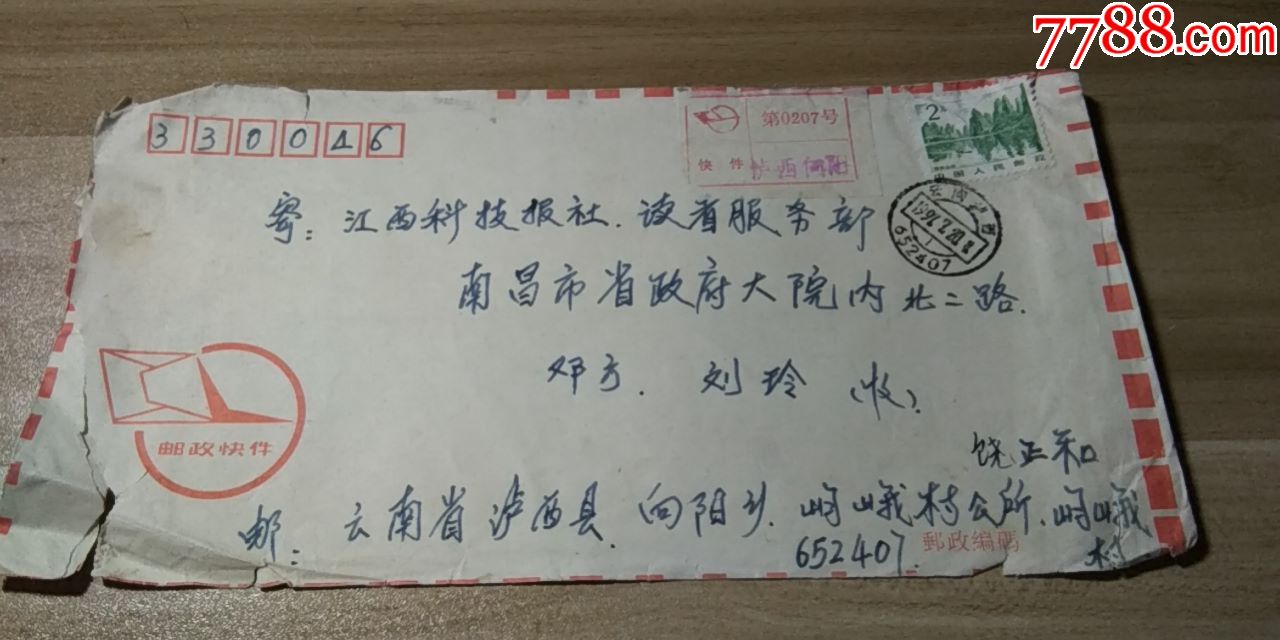 7788.com
330046
第0207号
快件
泸西向阳
2
中国人民邮政
云南泸西
652407
寄:江西科技报社.读者服务部
南昌市省政府大院内北二路.
邓方.刘玲(收).
邮政快件
饶正和
邮:云南省泸西县.向阳乡.峋峨村公所.峋峨村
652407.
郵政编碼